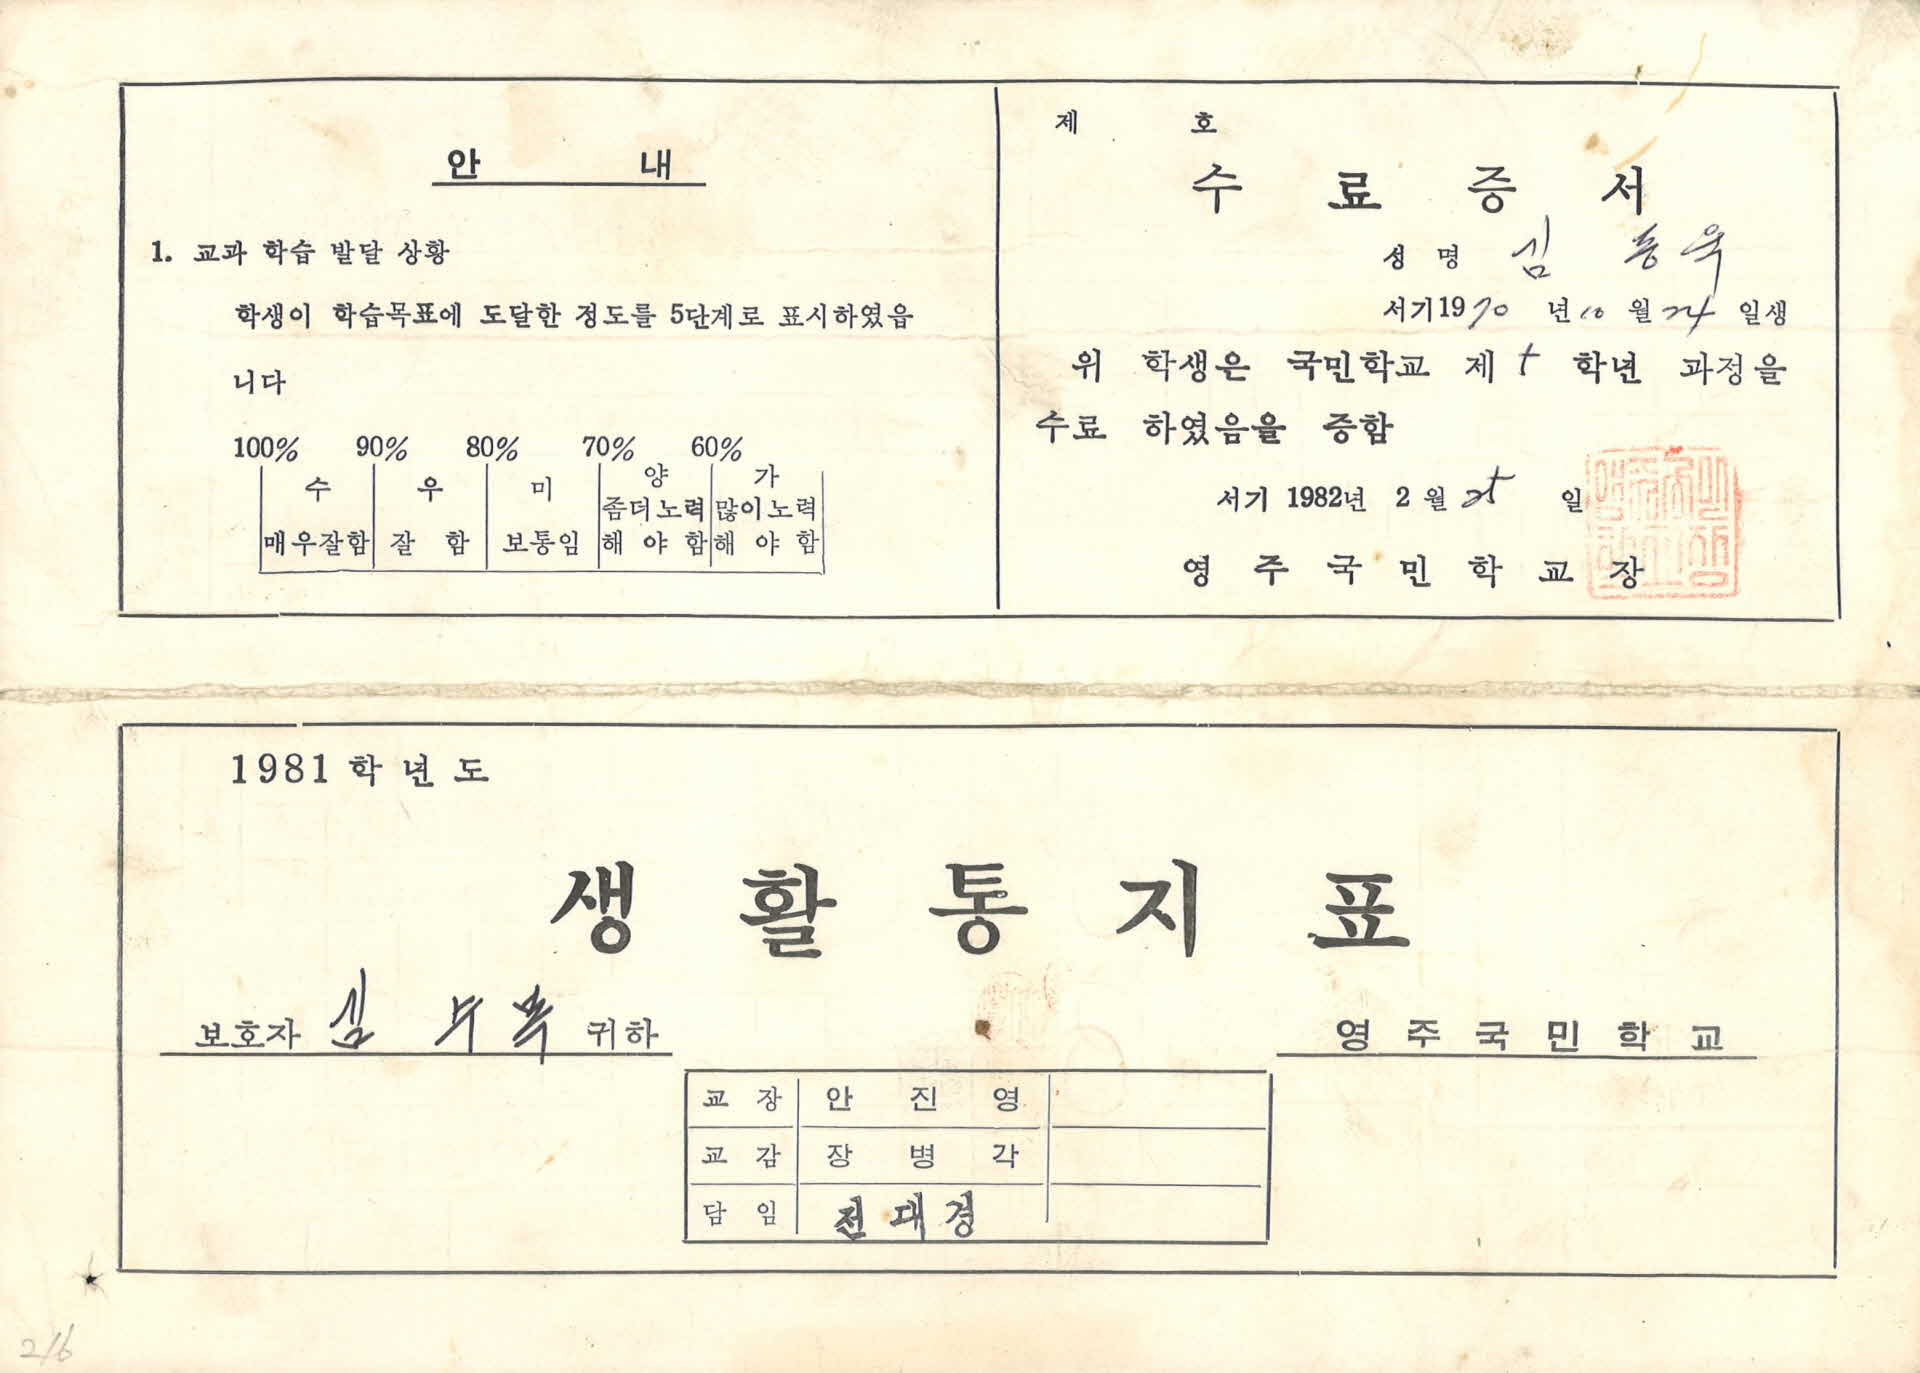 안 내
1. 교과 학습 발달 상황
학생이 학습목표에 도달한 정도를 5단계로 표시하였읍
니다
100% 90% 80% 70% 60%
수 우 미 양 가
좀더노력 많이노력
매우잘함 잘 함 보통임 해 야 함 해 야 함
제 호
수 료 증 서
성 명 심
서기 1970 년 10 월 24 일생
위 학생은 국민학교 제 5 학년 과정을
수료 하였음을 증함
서기 1982년 2 월 25 일
영 주 국 민 학 교 장
1981 학 년 도
생 활 통 지 표
보호자 심 귀하
영 주 국 민 학 교
교 장 안 진 영
교 감 장 병 각
담 임 전 대 경
216